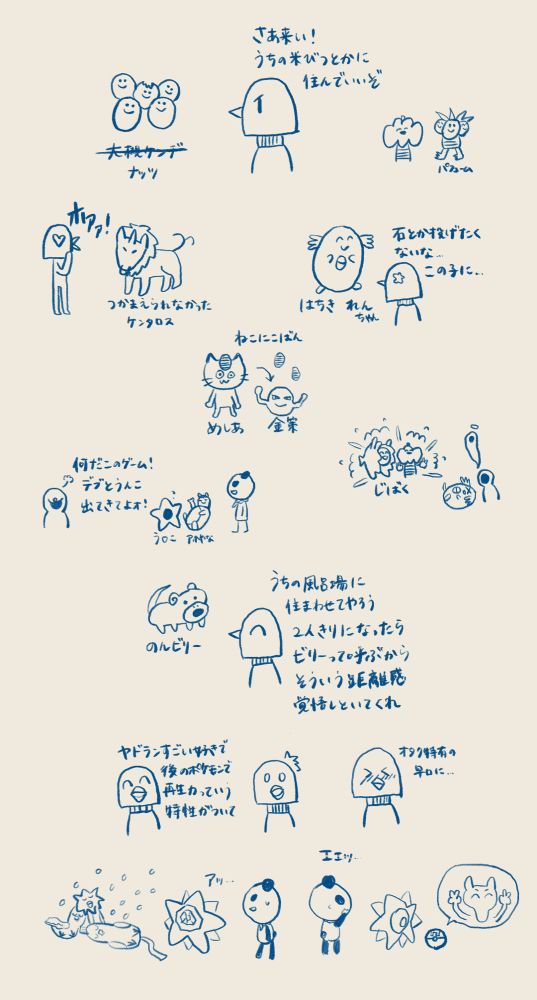 さあ来い!
うちの米びつとかに
住んでいいぞ
大槻ケンヂ
ナッツ
パゥーム
オリァァ!
つかまえられなかった
ケンタロス
石とか投げたく
ないな…
この子に…
はちき れん
ちゃん
ねこにこばん
めしあ
金策
何だこのゲーム!
デブとうんこ
出てきてよォ!
う○こ
じばく
のルビリー
うちの風呂場に
住まわせてやろう
2人きりになったら
ビリーって呼ぶから
そういう距離感
覚悟しといてくれ
ヤドランすごい好きで
後のポケモンで
再生力っていう
特性がついて
オタク特有の
早口に…
アッ…
エエッ…